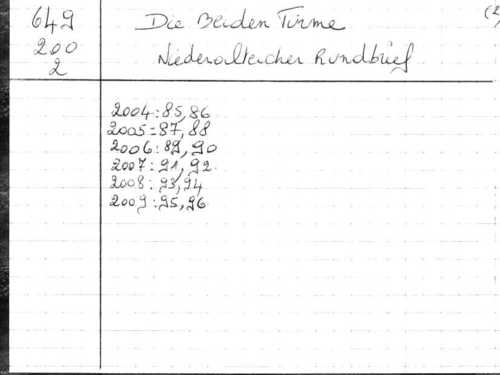 649
200
2
Die Beiden Türme
Niederalteicher Rundbrief
(2
2004:85,86
2005=87,88
2006:89,90
2007:91,92
2008:93,94
2009:95,96